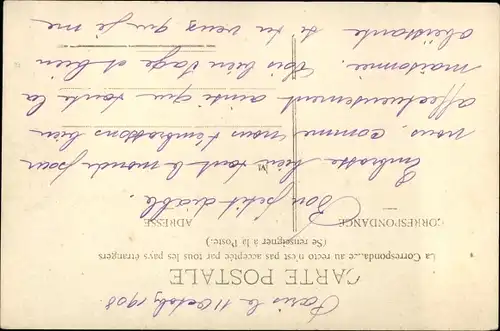 Paris le 11 Octob 1908
CARTE POSTALE
La Correspondance au recto n'est pas acceptée par tous les pays étrangers
(Se renseigner à la Poste.)
CORRESPONDANCE
ADRESSE
Bon petit diable.
Embrasse bien tout le monde pour
nous, comme nous t'embrassons bien
affectueusement ainsi que toute la
maisonnée. Sois bien sage et bien
obéissante si tu veux que je me